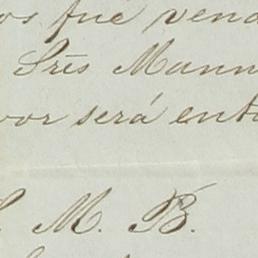 os fué vend
Srēs Mann
vor será ent
M. B.